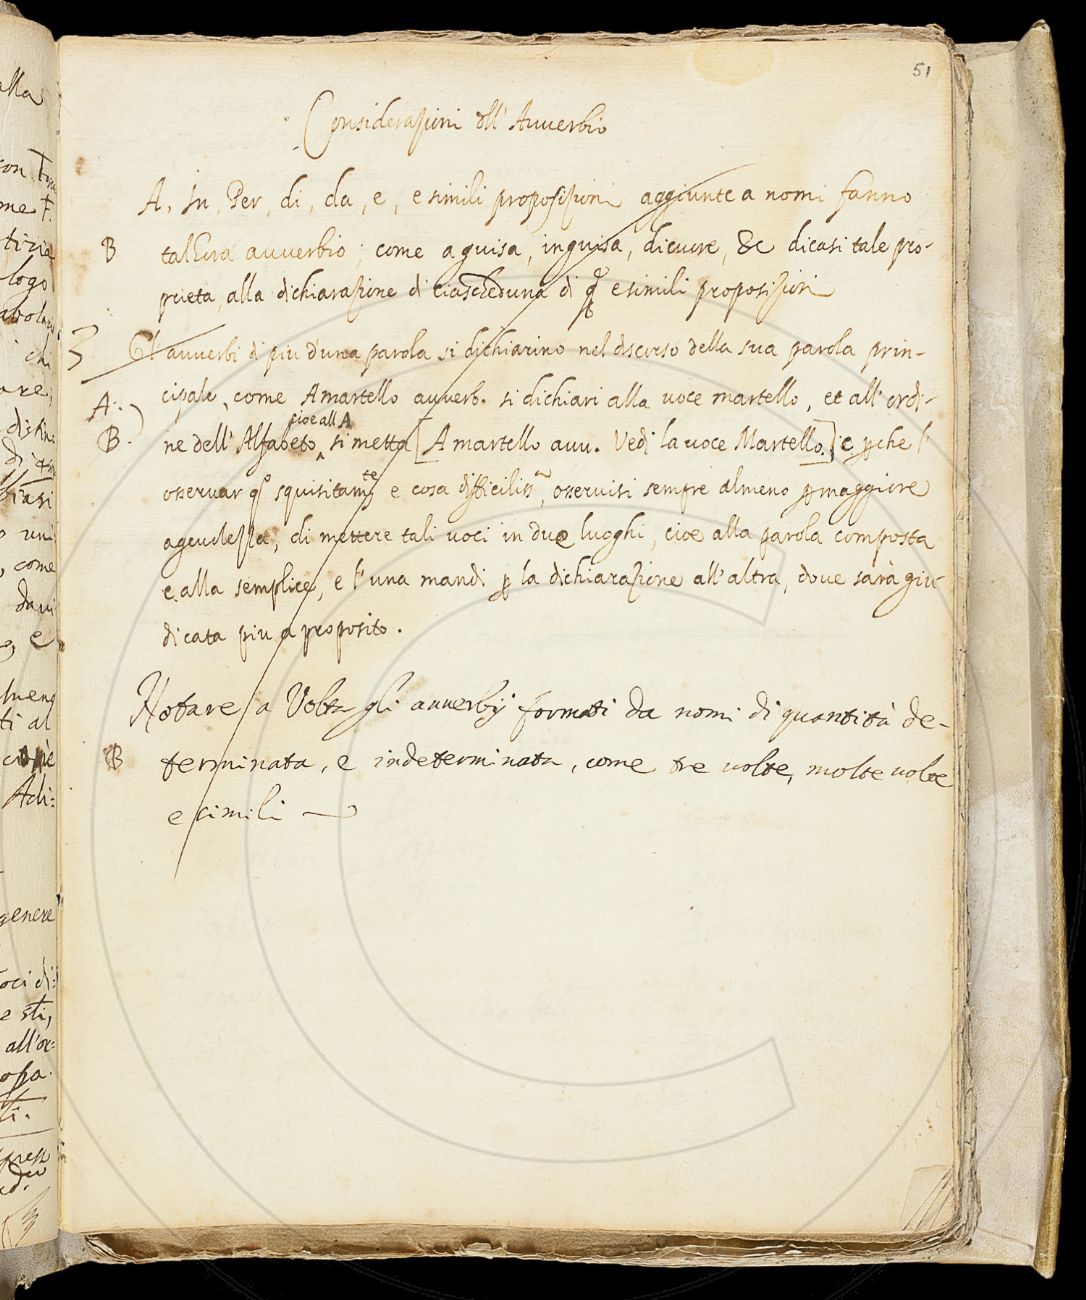 51
Considerazioni dell' Avverbio
A, In, Per, di, da, e, e simili proposizioni aggiunte a nomi fanno
B talhora avverbio; come a guisa, in guisa, di cuore, &c dicasi tale pro-
prieta, alla dichiarazione di ciascheduna di qste e simili proposizioni
3 Gl' avverbi di piu d'una parola si dichiarino nel discorso della sua parola prin-
A. cipale, come A martello avverb. si dichiari alla voce martello, et all' ordi-
cioe all A
B. ne dell' Alfabeto, si metta [A martello avv. Vedi la voce Martello.] e pche l'
osservar qsto squisitamte e cosa difficiliss.a, osservisi sempre almeno p maggiore
agevolezza, di mettere tali voci in due luoghi, cioe alla parola composta
e alla semplice, e l'una mandi p la dichiarazione all'altra, dove sarà giu-
dicata piu a proposito.
Notare a Volta gli avverbij formati da nomi di quantità de-
B terminata, e indeterminata, come tre volte, molte volte
e simili